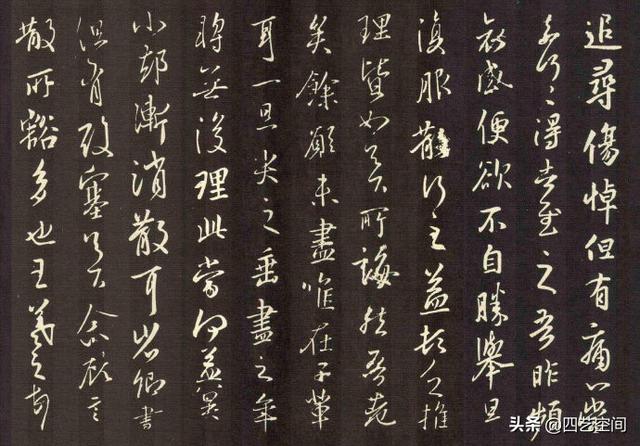 追尋傷悼但有痛心當
奈何奈何得告慰之吾昨頻
哀感便欲不自勝舉旦
復服散行之益頓乏推
理皆如足下所誨然吾老
矣餘願未盡唯在子輩
耳一旦哭之垂盡之年
轉無復理此當何益冀
小却漸消散耳省卿書
但有酸塞足下念故言
散所豁多也王羲之頓首
头条 @四艺空间